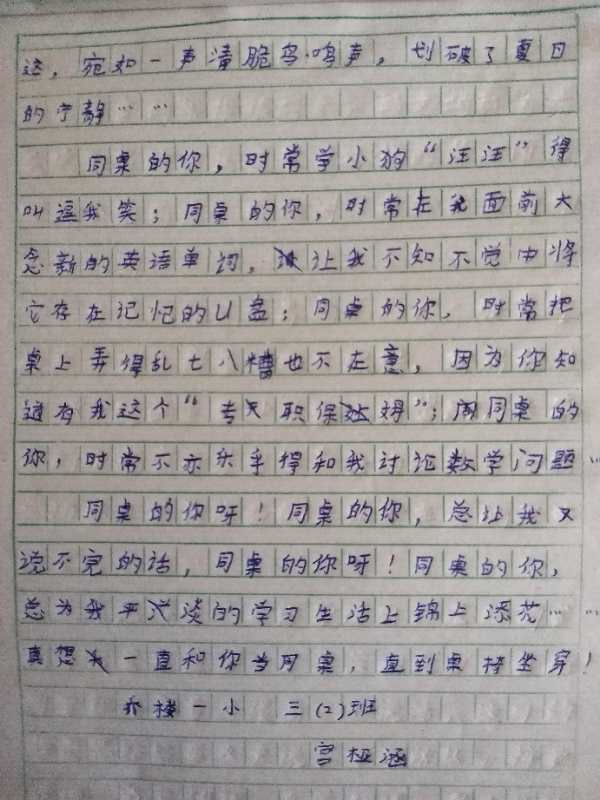 这，宛如一声清脆鸟鸣声，划破了夏日
的宁静……
同桌的你，时常学小狗“汪汪”得
叫逗我笑；同桌的你，时常在我面前大
念新的英语单词，让我不知不觉中将
它存在记忆的U盘；同桌的你，时常把
桌上弄得乱七八糟也不在意，因为你知
道有我这个“专职保姆”；同桌的
你，时常不亦乐乎得和我讨论数学问题…
同桌的你呀！同桌的你，总让我又
说不完的话，同桌的你呀！同桌的你，
总为我平淡的学习生活上锦上添花……
真想一直和你当同桌，直到桌椅坐穿！
乔楼一小 三(2)班
宫桠涵